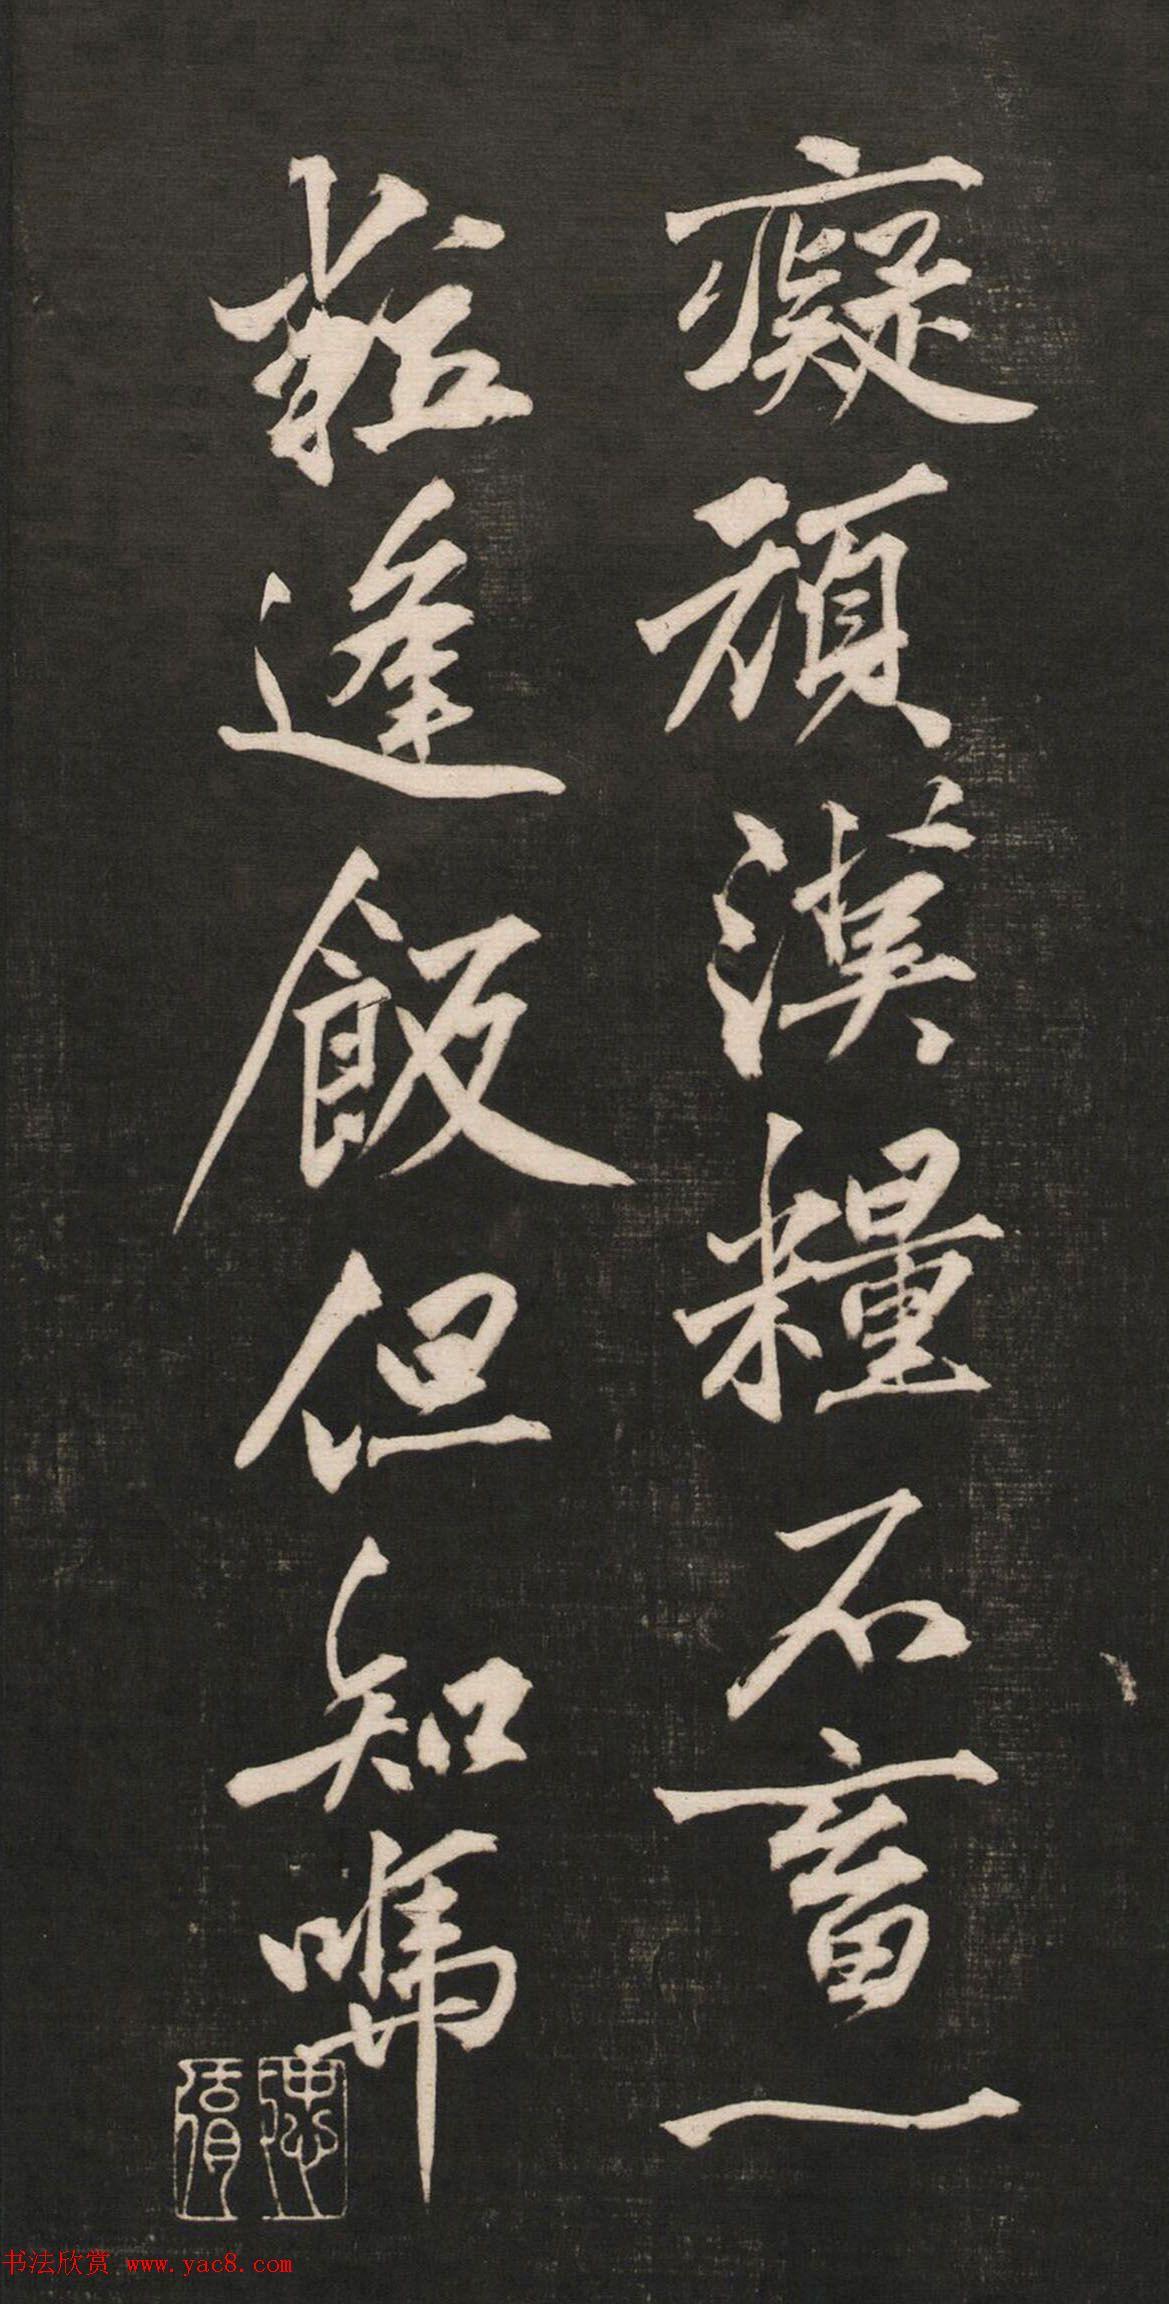 癡頑漢糧不畜一
粒逢飯但知噇
书法欣赏 www.yac8.com